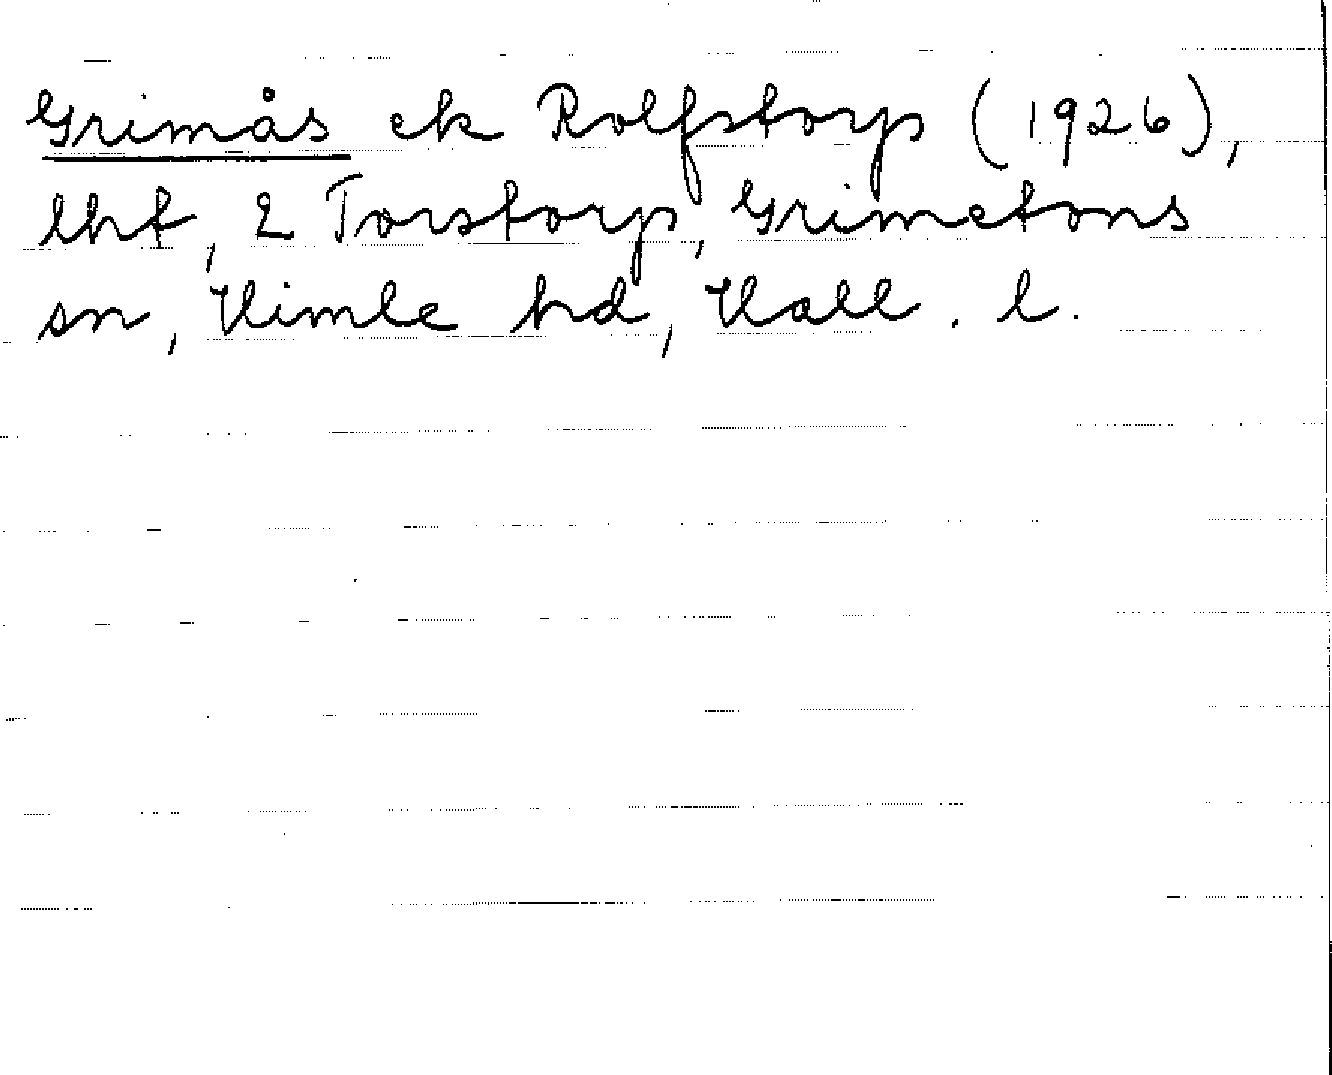 Grimås ek Rolfstorp (1926),
lht, 2 Torstorp, Grimetons
sn, Himle hd, Hall. l.